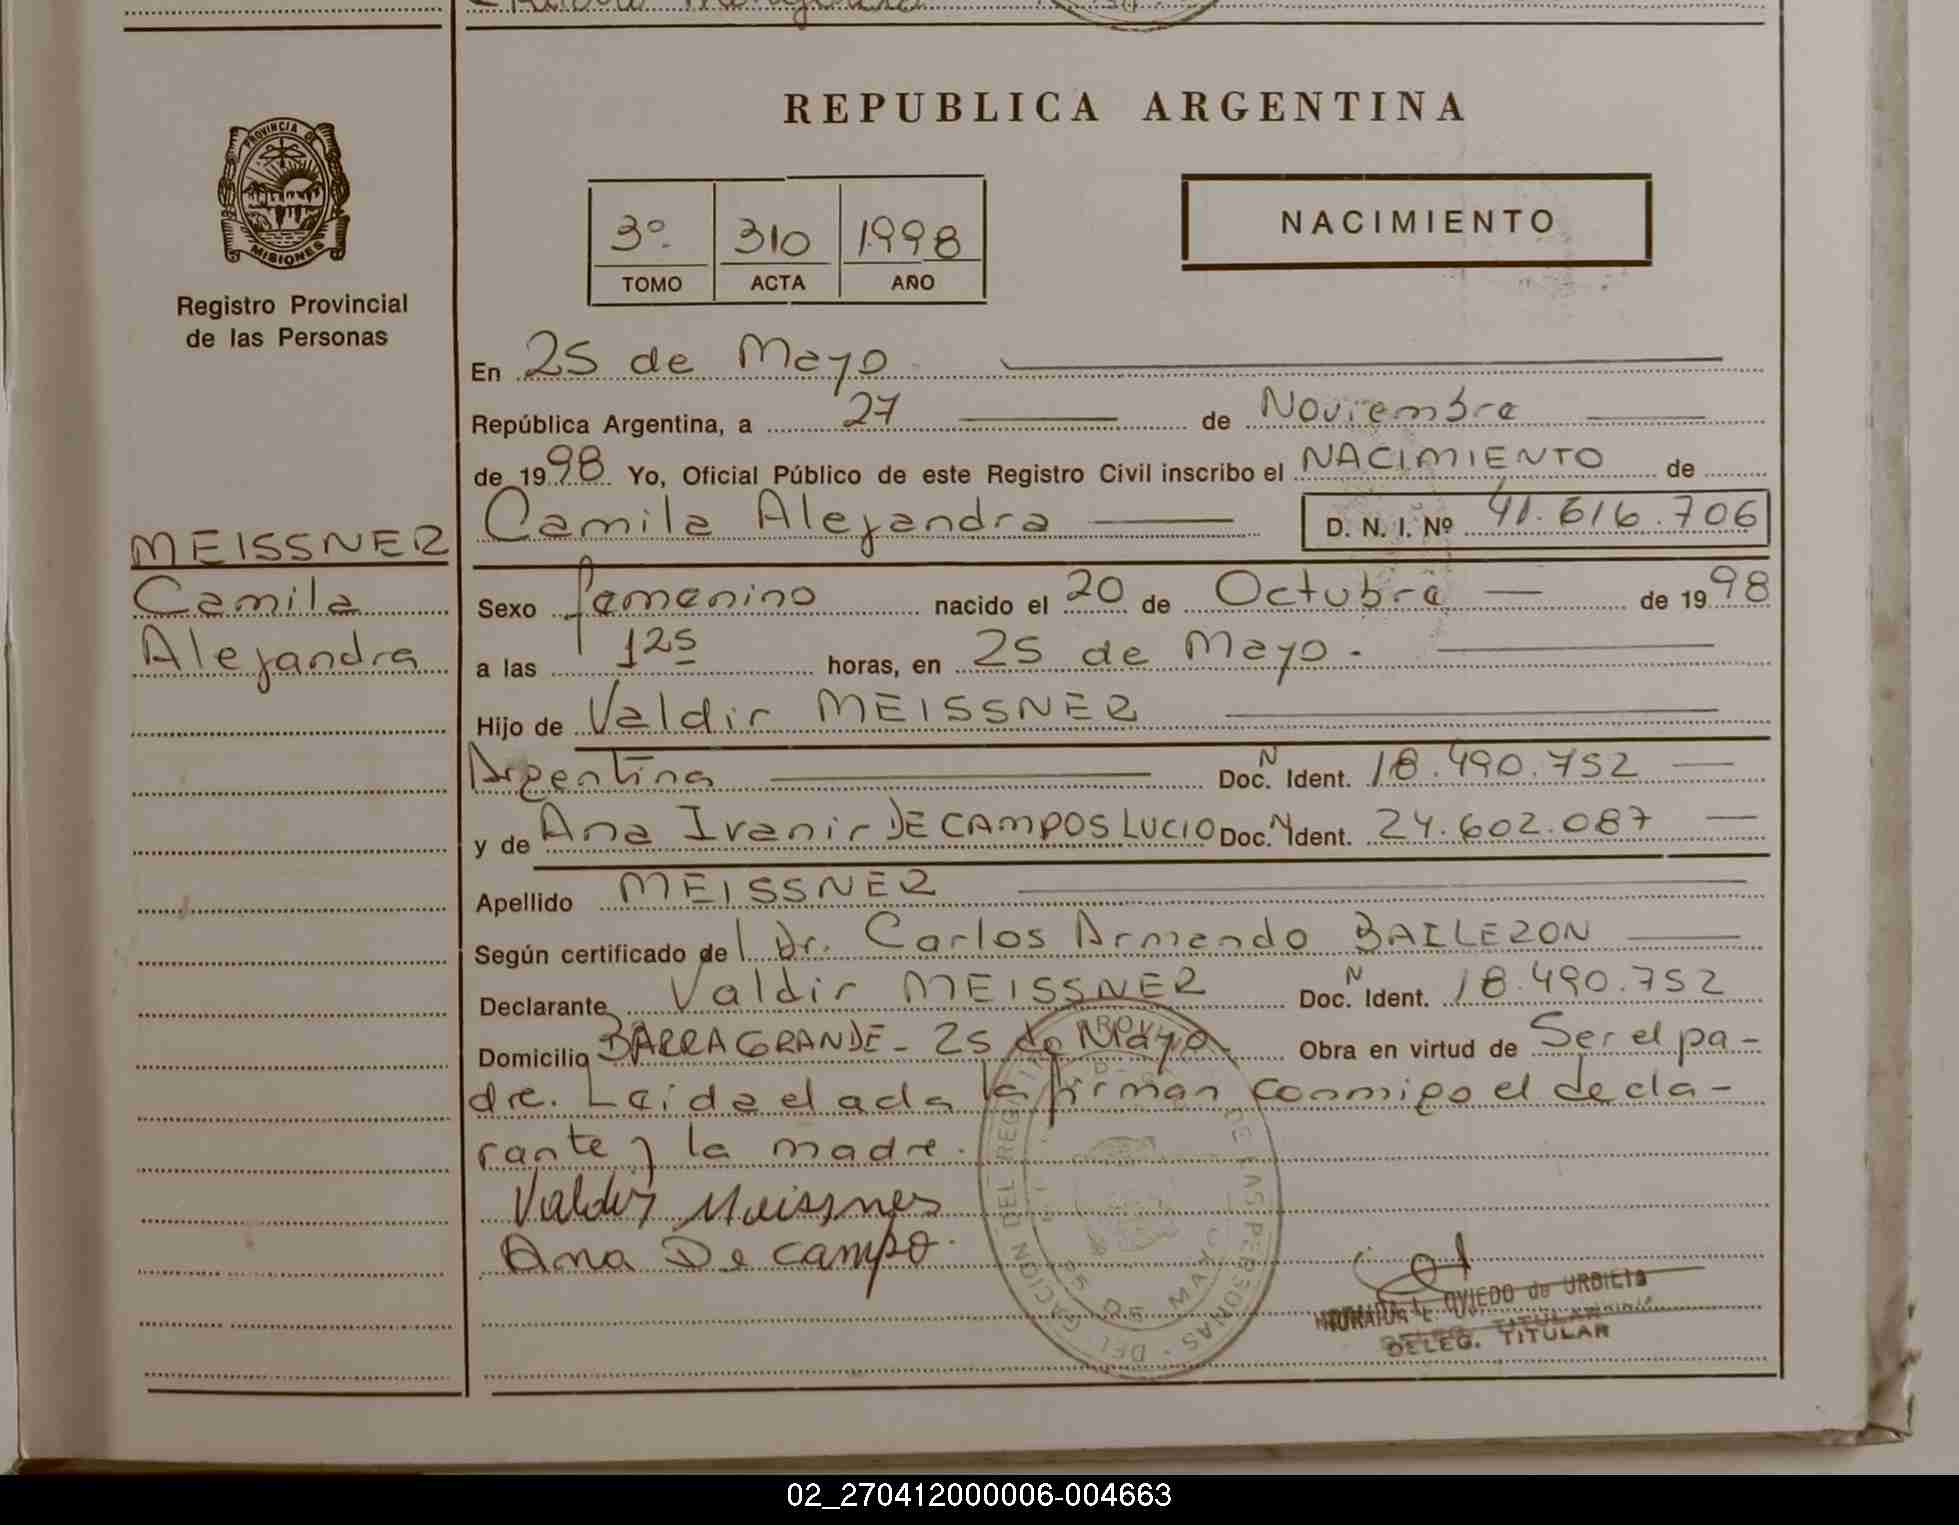 REPUBLICA ARGENTINA
PROVINCIA DE
MISIONES
Registro Provincial
de las Personas
3º 310 1998
TOMO ACTA AÑO
NACIMIENTO
En 25 de Mayo
República Argentina, a 27 de Noviembre
de 1998 Yo, Oficial Público de este Registro Civil inscribo el NACIMIENTO de
Camila Alejandra D. N. I. Nº 41.616.706
MEISSNER
Camila
Alejandra
Sexo femenino nacido el 20 de Octubre de 1998
a las 12s horas, en 25 de Mayo.
Hijo de Valdir MEISSNER
Argentina Doc. N Ident. 18.490.752
y de Ana Ivanir DE CAMPOS LUCIO Doc. N Ident. 24.602.087
Apellido MEISSNER
Según certificado de l Dr. Carlos Armando
Declarante Valdir MEISSNER Doc. N Ident. 18.490.752
Domicilio BARRA GRANDE - 25 de Mayo - Obra en virtud de Ser el pa-
dre. Leida el acta la firman conmigo el decla-
rante y la madre.
Valdir Meissner
Ana De campo.
OVIEDO de
DELEG. TITULAR
25 DE MAYO
02_270412000006-004663